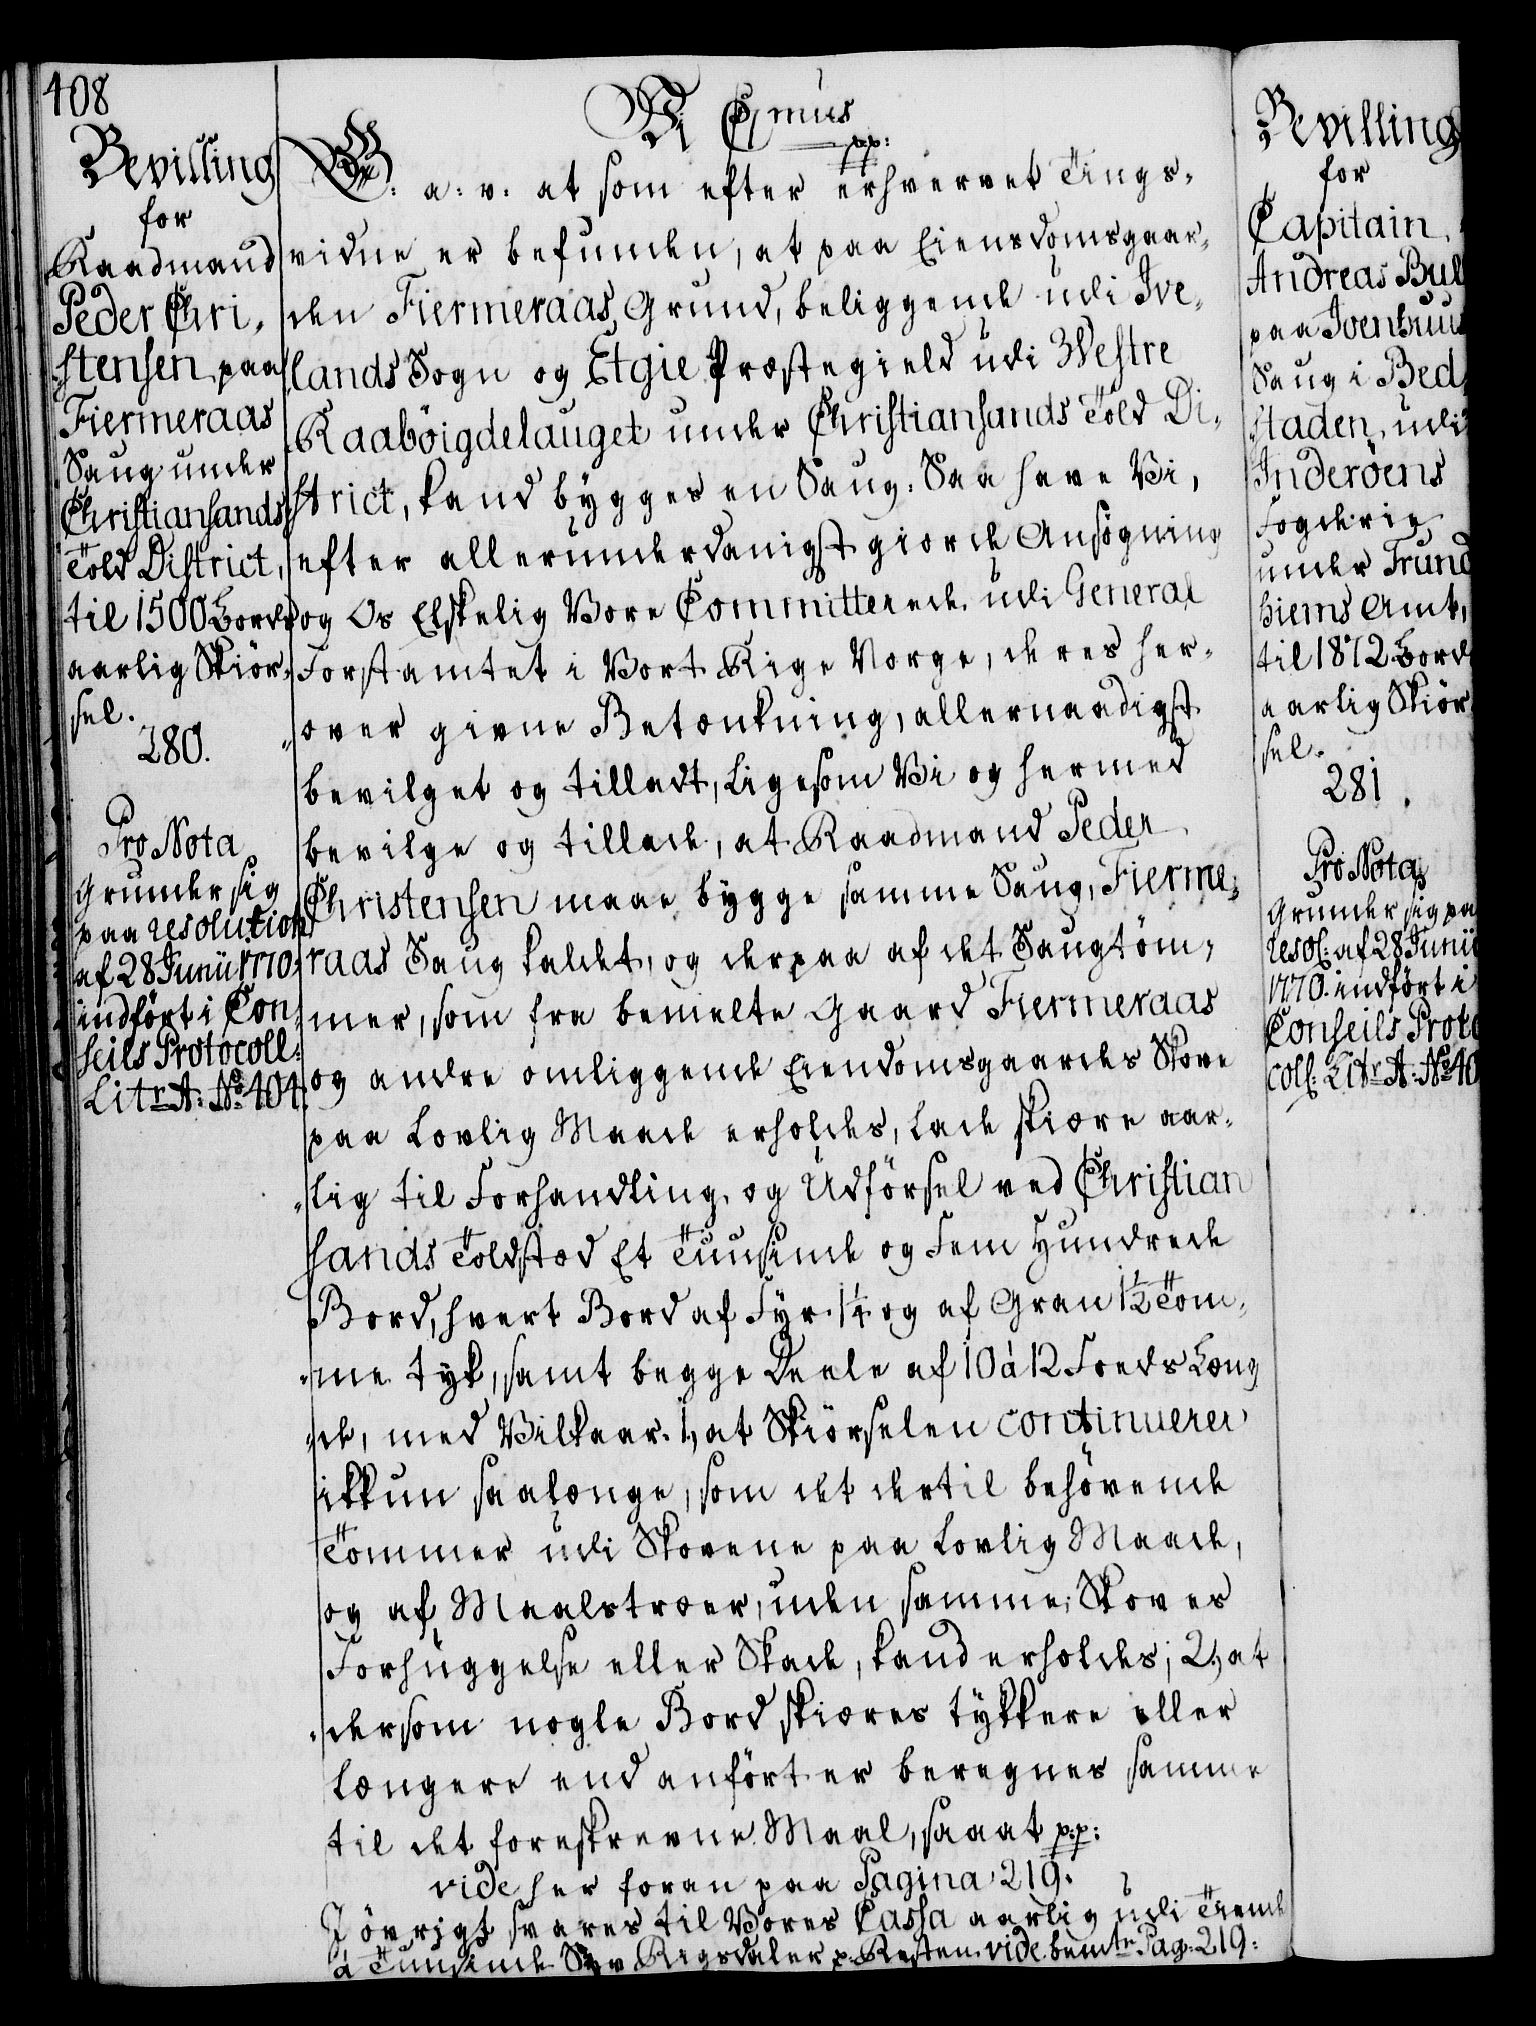 408
Bevilling
for
Raadmand
Peder Chri-
stensen paa
Fiermeraas
Saug under
Christiansands
Told District,
til 1500 Bords
aarlig Skiör-
sel.
280.
Pro Nota
grunder sig
paa resolution
af 28 Junii 1770.
indført i Con-
seils Protocoll.
Litr. A: No. 404.
Vi C 7mus
pp:
G: a: v: at som efter erhvervet Tings-
vidne er befunden, at paa Eiensdomsgaar-
den Fiermeraas Grund, beliggende udi Ive-
lands Sogn og Etgie Præstegield udi Westre
Raaböigdelauget under Christiansands Told Di-
strict, kand bygges en Saug: Saa have Vi,
efter allerunderdanigst giorde Ansögning
og Os Elskelig Vore Committerede udi General
Forstamtet i Vort Rige Norge, deres her-
over givne Betænkning, allernaadigst
bevilget og tilladt, ligesom Vi og hermed
bevilge og tillade, at Raadmand Peder
Christensen maae bygge samme Saug, Fierme-
raas Saug kaldet, og derpaa af det Saugtöm-
mer, som fra bemelte Gaard Fiermeraas
og andre omliggende Eiendomsgaardes Skove
paa lovlig Maade erholdes, lade skiære aar-
lig til Forhandling og Udförsel ved Christian
sands Toldstæd Et Tuusinde og Fem Hundrede
Bord, hvert Bord af Fyr 1¼ og af Gran 1½ Tom-
me tyk, samt begge Deele af 10 à 12 Foeds Læng
de, med Vilkaar 1, at Skiörselen continuerer
ikkun saalænge, som det dertil behövende
Tömmer udi Skovene paa lovlig Maade,
og af Maalstræer, uden samme Skoves
Forhuggelse eller Skade, kand erholdes; 2, at
dersom nogle Bord skiæres tykkere eller
længere end anfört er beregnes samme
til det foreskrevne Maal, saaat p:p:
vide her foran paa Pagina 219.
I övrigt svares til Vores Cassa aarlig udi Tiende
à Tuusinde Sÿv Rigsdaler p. Resten vide bemte Pag. 219:
Bevilling
for
Capitain
Andreas Bull
paa Ivenhuus
Saug i Bed-
staden, udi
Inderöens
Fogderie
under Trund
hiems Amt,
til 1872 Bord
aarlig Skiör
sel.
281.
Pro Nota
grunder sig paa
resol: af 28 Junii
1770. indfört i
Conseils Proto
coll: Litr A: No. 40